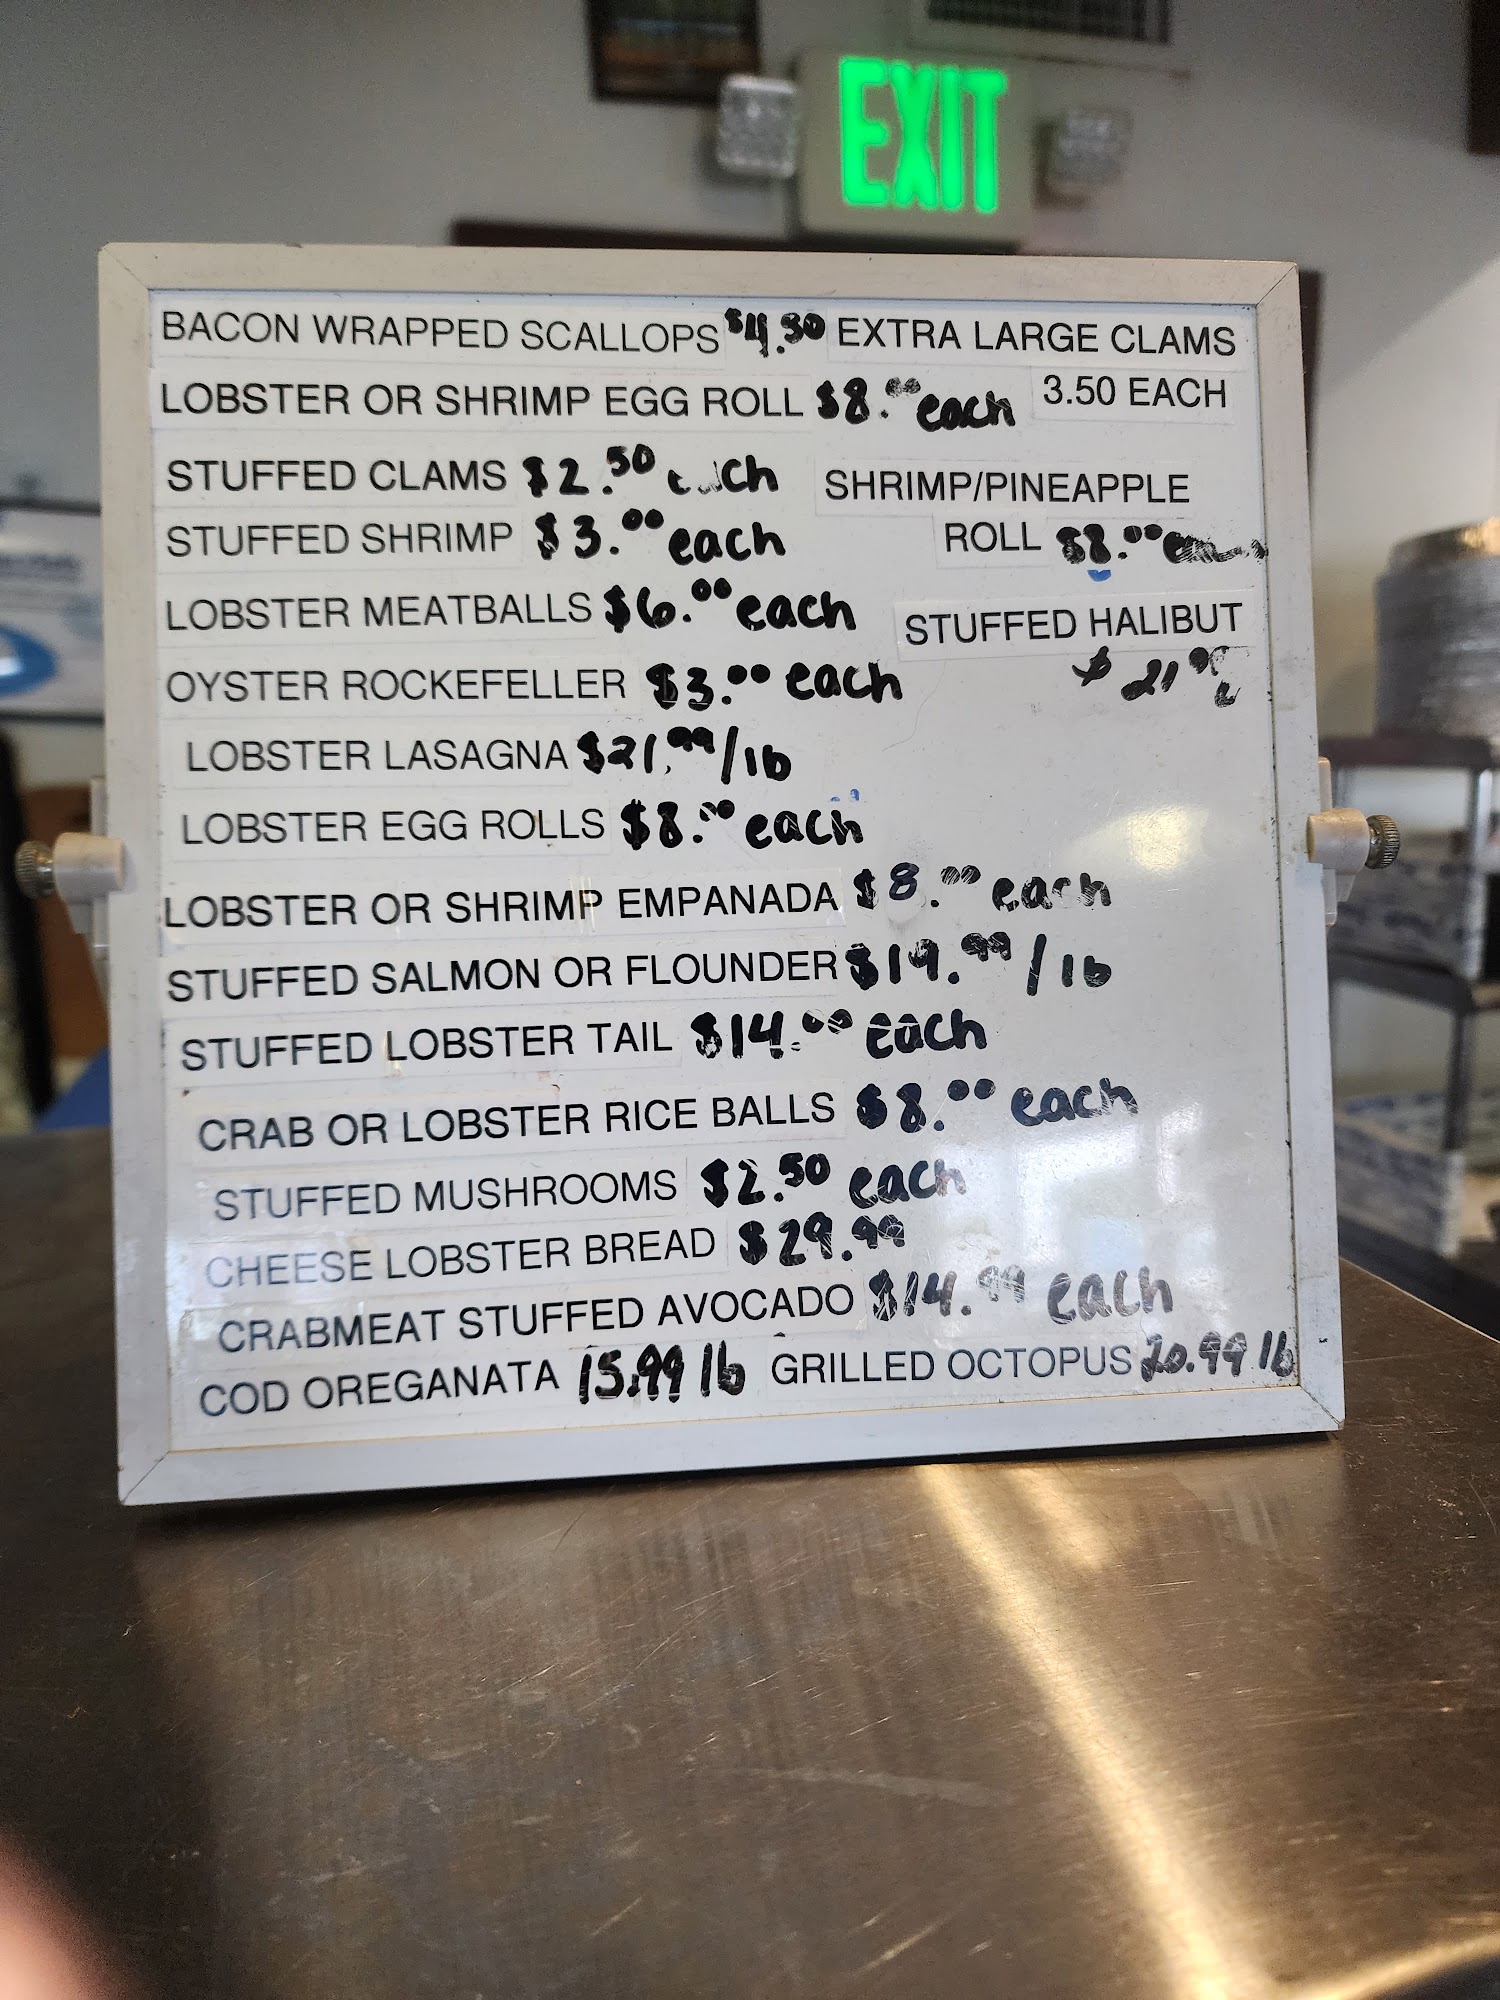 EXIT
BACON WRAPPED SCALLOPS $4.50 EXTRA LARGE CLAMS
3.50 EACH
LOBSTER OR SHRIMP EGG ROLL $8.00 each
STUFFED CLAMS $2.50 each
SHRIMP/PINEAPPLE
STUFFED SHRIMP $3.00 each
ROLL $8.00
LOBSTER MEATBALLS $6.00 each
STUFFED HALIBUT
$21
OYSTER ROCKEFELLER $3.00 each
LOBSTER LASAGNA $21.99/lb
LOBSTER EGG ROLLS $8.00 each
LOBSTER OR SHRIMP EMPANADA $8.00 each
STUFFED SALMON OR FLOUNDER $19.99/lb
STUFFED LOBSTER TAIL $14.00 each
CRAB OR LOBSTER RICE BALLS $8.00 each
STUFFED MUSHROOMS $2.50 each
CHEESE LOBSTER BREAD $29.99
CRABMEAT STUFFED AVOCADO $14.99 each
COD OREGANATA 15.99 lb GRILLED OCTOPUS 20.99 lb